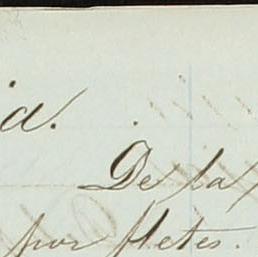 De la
por fletes.